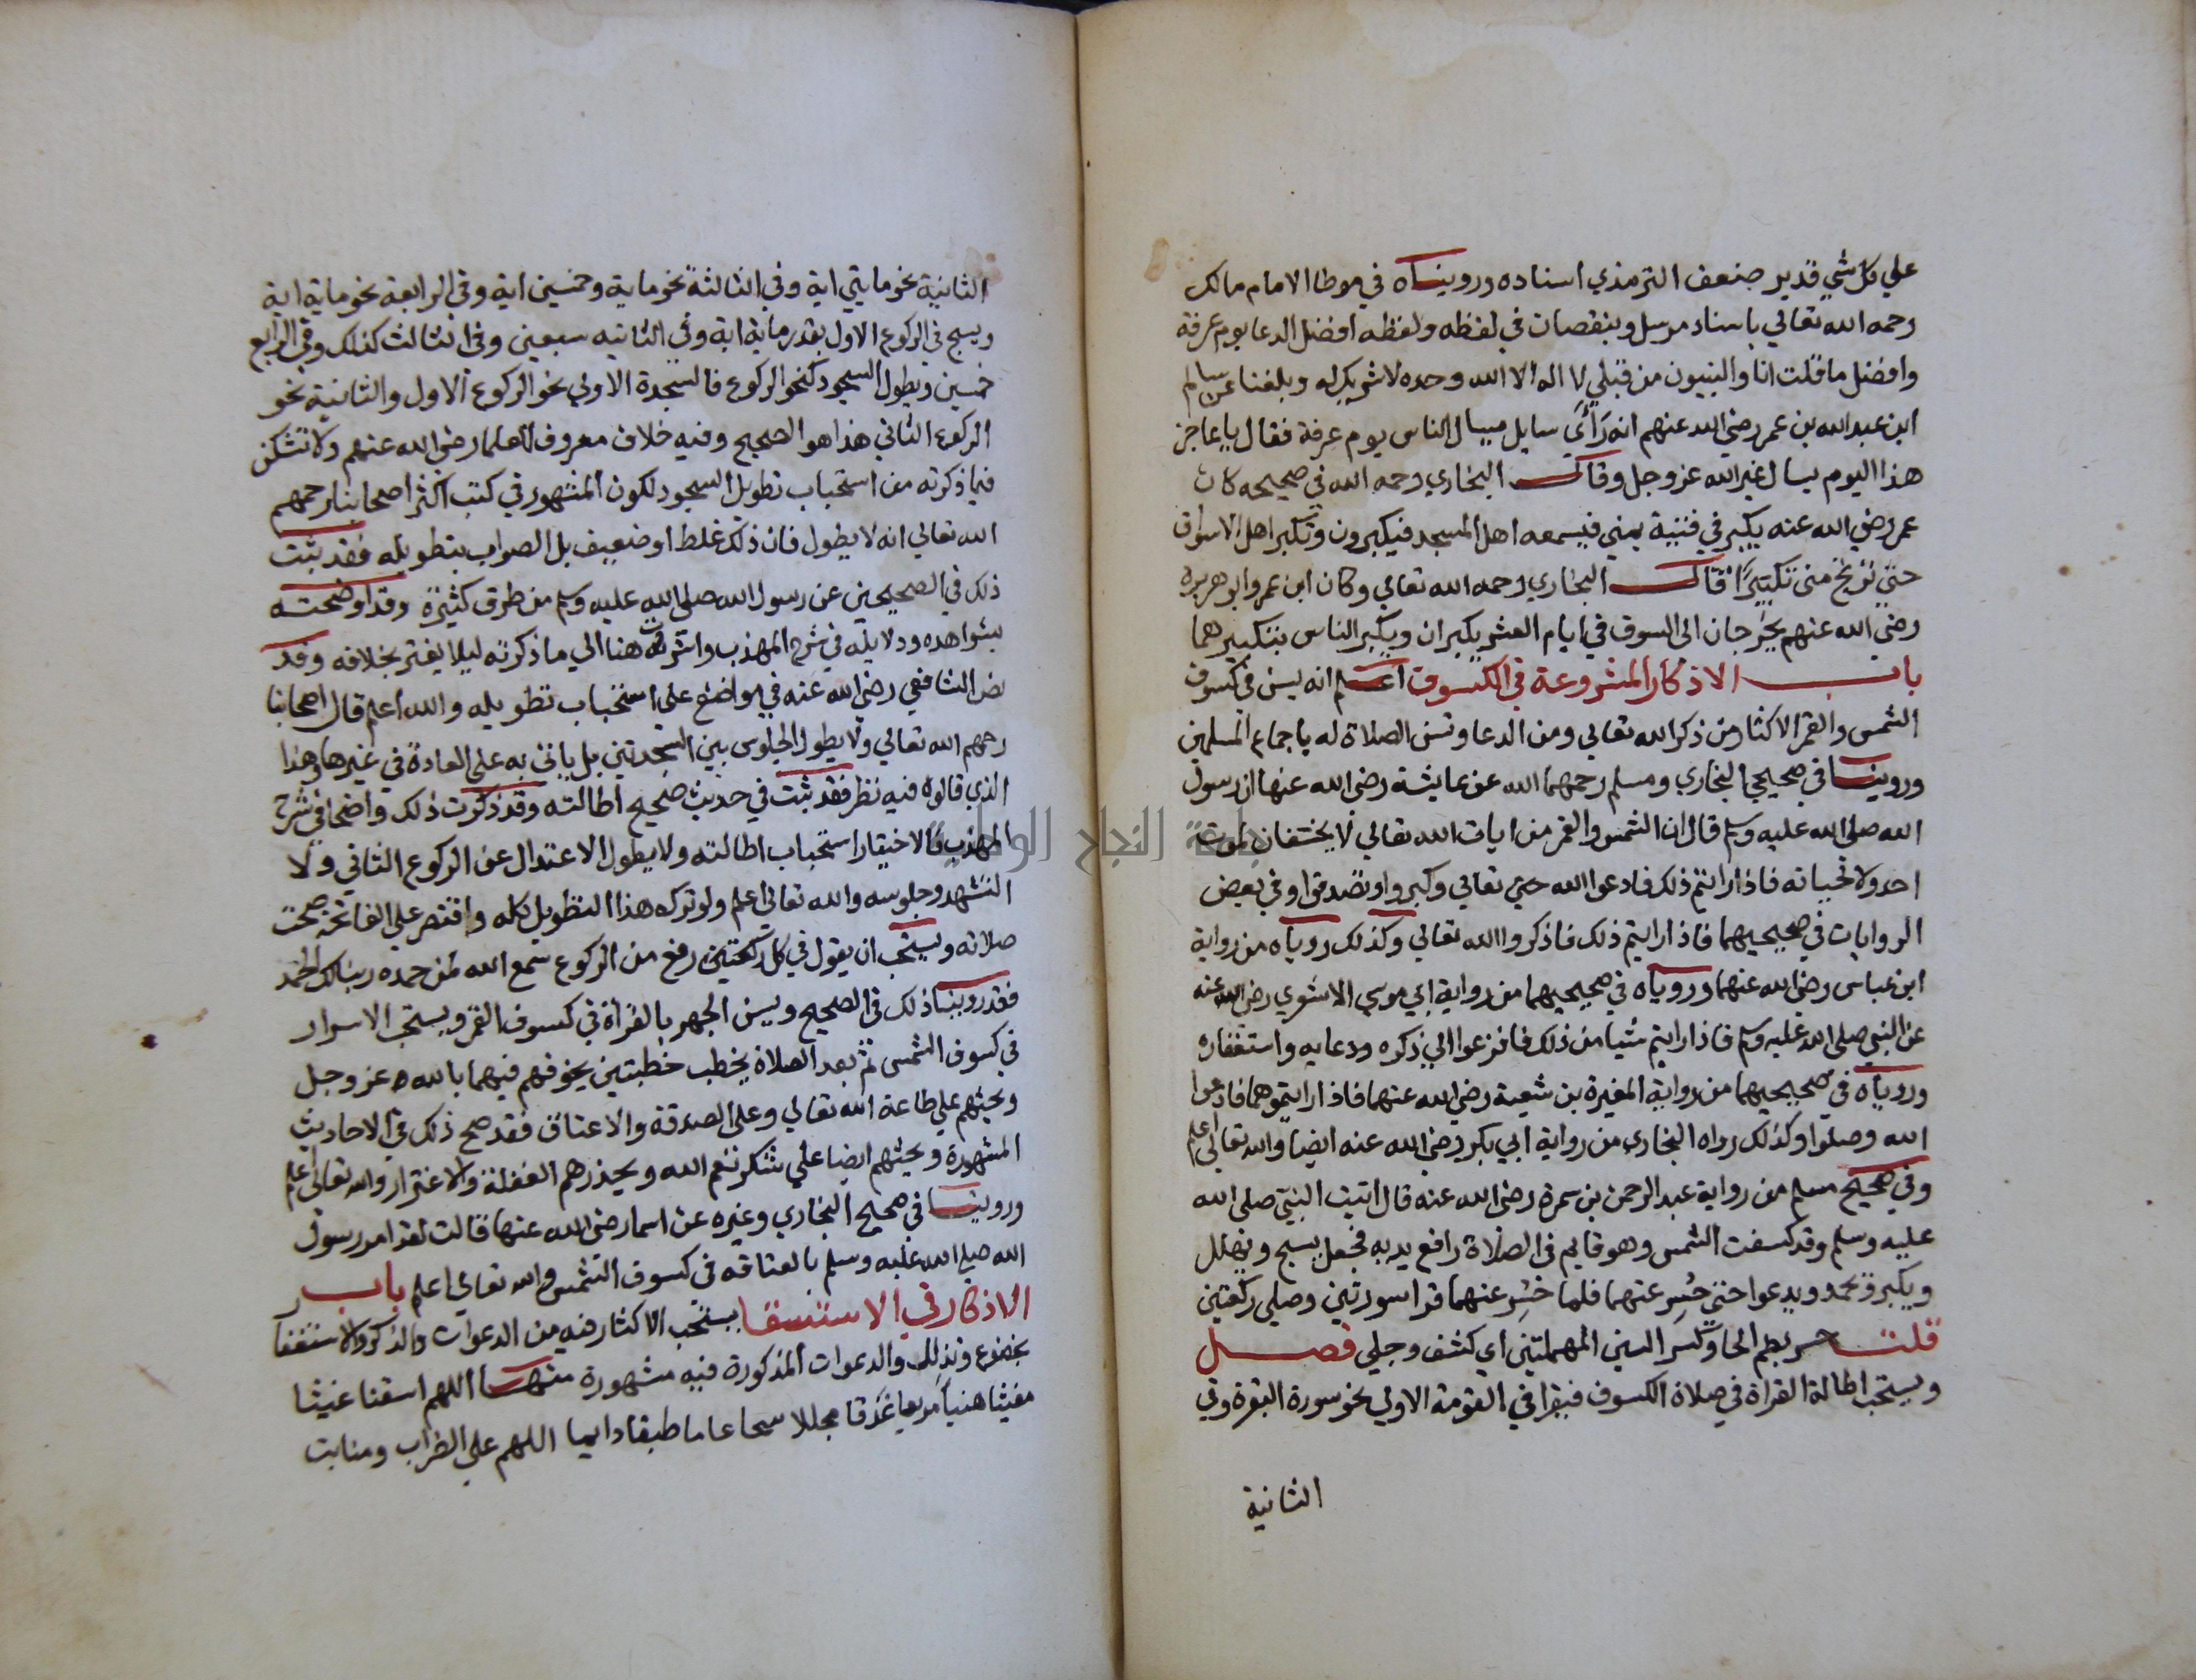 علي كل شي قدير ضعف الترمذي اسناده وروينـاه في موطا الامام مالك
رحمه الله تعالي باسناد مرسل وبنقصان في لفظه ولفظه افضل الدعا يوم عرفة
وافضل ما قلت انا والنبيون من قبلي لا اله الا الله وحده لا شريك له وبلغنا عن سالم
ابن عبد الله بن عمر رضي الله عنهم انه رَأَي سايل يسال الناس يوم عرفة فقال يا عاجز
هذا اليوم يسال غير الله عز وجل وقال البخاري رحمه الله في صحيحه كان
عمر رضي الله عنه يكبر في قبته بمني فيسمعه اهل المسجد فيكبرون وتكبر اهل الاسواق
حتي ترتج مني تكبيرًا قال البخاري رحمه الله تعالي وكان ابن عمر وابو هريرة
رضي الله عنهم يخرجان الي السوق في ايام العشر يكبران ويكبر الناس بتكبيرهما
باب الاذكار المشروعة في الكسوف اعلم انه يسن في كسوف
الشمس والقمر الاكثار من ذكر الله تعالي ومن الدعا وتسن الصلاة له باجماع المسلمين
وروينـا في صحيحي البخاري ومسلم رحمهما الله عن عايشة رضي الله عنها ان رسول
الله صلي الله عليه وسلم قال ان الشمس والقمر من ايات الله تعالي لا يخسفان لموت
احد ولا لحياته فاذا رايتم ذلك فادعوا الله حتي تعالي وكبروا وتصدقوا وفي بعض
الروايات في صحيحيهما فاذا رايتم ذلك فاذكروا الله تعالي وكذلك روياه من رواية
ابن عباس رضي الله عنهما وروياه في صحيحيهما من رواية ابي موسي الاشعري رضي الله عنه
عن النبي صلي الله عليه وسلم فاذا رايتم شيا من ذلك فافزعوا الي ذكره ودعايه واستغفاره
وروياه في صحيحيهما من رواية المغيرة بن شعبة رضي الله عنهما فاذا رايتموهما فادعوا
الله وصلوا وكذلك رواه البخاري من رواية ابي بكر رضي الله عنه ايضا والله تعالي اعلم
وفي صحيح مسلم من رواية عبد الرحمن بن سمرة رضي الله عنه قال اتيت النبي صلي الله
عليه وسلم وقد كسفت الشمس وهو قايم في الصلاة رافع يديه فجعل يسبح ويهلل
ويكبر ويحمد ويدعوا حتي حُسِر عنهما فلما حُسِر عنهما قرا سورتين وصلي ركعتين
قلت حسر بضم الحا وكسر السين المهملتين اي كشف وجلي فصل
ويستحب اطالة القراة في صلاة الكسوف فيقرا في القومة الاولي نحو سورة البقرة وفي
الثانية
الثانية نحو مايتي اية وفي الثالثة نحو ماية وخمسين اية وفي الرابعة نحو ماية اية
ويسبح في الركوع الاول بقدر ماية اية وفي الثانيه سبعين وفي الثالث كذلك وفي الرابع
خمسين ويطول السجود كنحو الركوع فالسجدة الاولي نحو الركوع الاول والثانية نحو
الركوع الثاني هذا هو الصحيح وفيه خلاف معروف للعلما رضي الله عنهم ولا تشكن
فيما ذكرته من استحباب تطويل السجود لكون المشهور في كتب اكثر اصحابنا رحمهم
الله تعالي انه لا يطول فان ذلك غلط او ضعيف بل الصواب بتطويله فقد ثبت
ذلك في الصحيحين عن رسول الله صلي الله عليه وسلم من طرق كثيرة وقد اوضحته
بشواهده ودلايله في شرح المهذب واشرت هنا الي ما ذكرته ليلا يغتر بخلافه وقد
نص الشافعي رضي الله عنه في مواضع علي استحباب تطويله والله اعلم قال اصحابنا
رحمهم الله تعالي ولا يطول الجلوس بين السجدتين بل ياتي به علي العادة في غيرها وهذا
الذي قالوه فيه نظر فقد ثبت في حديث صحيح اطالته وقد ذكرت ذلك واضحا في شرح
المهذب فالاختيار استحباب اطالته ولا يطول الاعتدال عن الركوع الثاني ولا
التشهد وجلوسه والله تعالي اعلم ولو ترك هذا التطويل كله واقتصر علي الفاتحة صحت
صلاته ويستحب ان يقول في كل ركعتين رفع من الركوع سمع الله لمن حمده ربنا لك الحمد
فقد روينا ذلك في الصحيح ويسن الجهر بالقراة في كسوف القمر ويستحب الاسرار
في كسوف الشمس ثم بعد الصلاة يخطب خطبتين يخوفهم فيهما بالله عز وجل
ويحثهم علي طاعة الله تعالي وعلي الصدقة والاعتاق فقد صح ذلك في الاحاديث
المشهورة ويحثهم ايضا علي شكر نعم الله ويحذرهم الغفلة والاغترار والله تعالي اعلم
وروينـا في صحيح البخاري وغيره عن اسما رضي الله عنها قالت لقد امر رسول
الله صلي الله عليه وسلم بالعتاقه في كسوف الشمس والله تعالي اعلم باب
الاذكار في الاستسقا يستحب الاكثار فيه من الدعوات والذكر والاستغفار
بخضوع وتذلل والدعوات المذكورة فيه مشهورة منهـا اللهم اسقنا غيثا
مغيثا هنيا مريعا غدقا مجللا سحا عاما طبقا دايما اللهم علي الظراب ومنابت
جامعة النجاح الوطنية